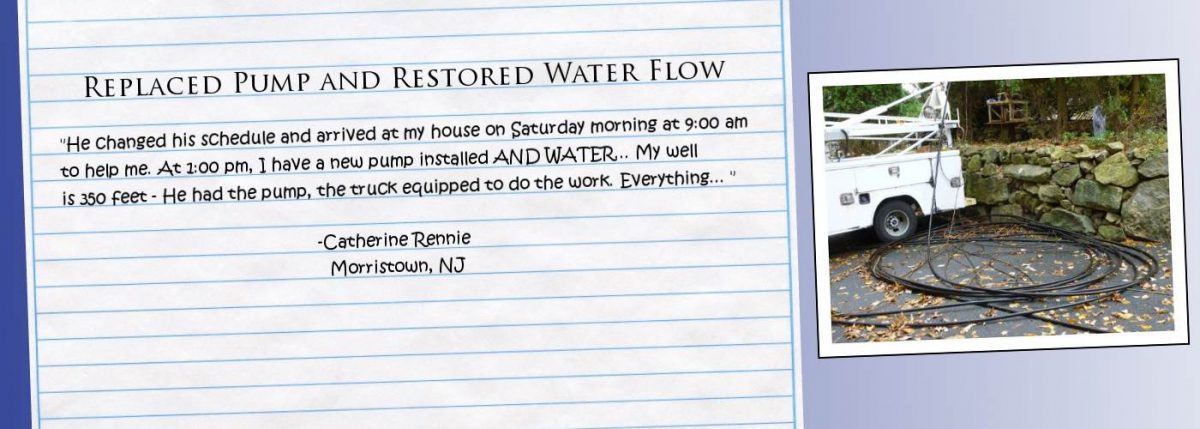 Replaced Pump and Restored Water Flow
"He changed his schedule and arrived at my house on Saturday morning at 9:00 am
to help me. At 1:00 pm, I have a new pump installed AND WATER... My well
is 350 feet - He had the pump, the truck equipped to do the work. Everything... "
-Catherine Rennie
Morristown, NJ